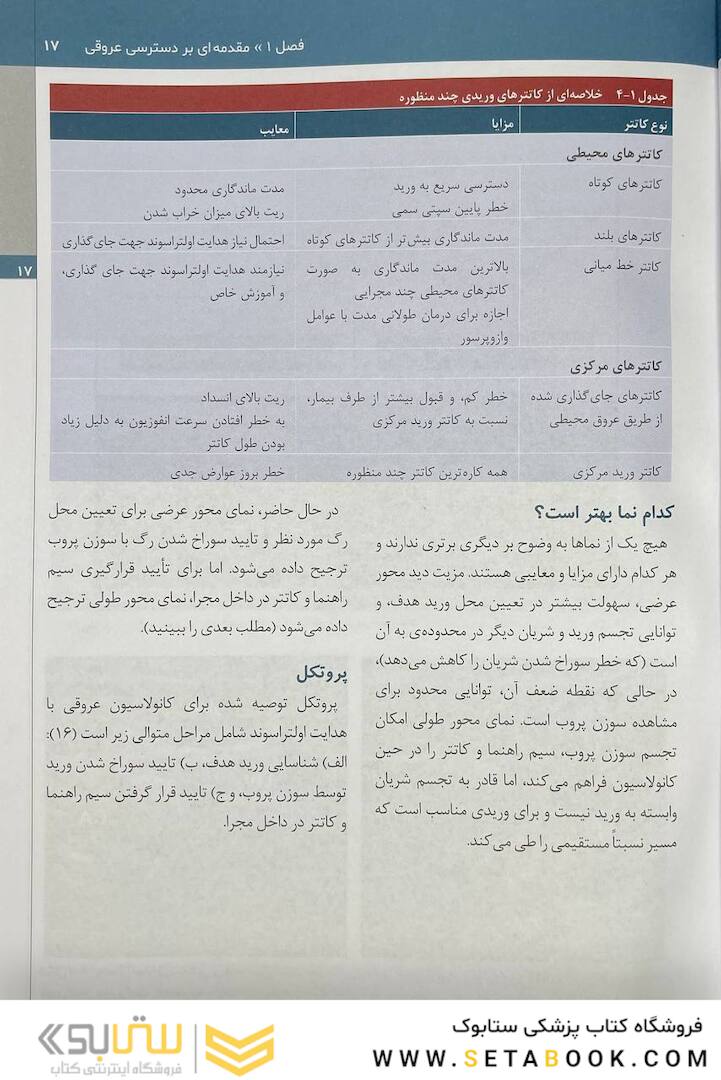 فصل ۱ » مقدمه‌ای بر دسترسی عروقی ۱۷
جدول ۱-۴ خلاصه‌ای از کاتترهای وریدی چند منظوره
نوع کاتتر مزایا معایب
کاتترهای محیطی
کاتترهای کوتاه دسترسی سریع به ورید مدت ماندگاری محدود
خطر پایین سپتی سمی ریت بالای میزان خراب شدن
کاتترهای بلند مدت ماندگاری بیش‌تر از کاتترهای کوتاه احتمال نیاز هدایت اولتراسوند جهت جای‌گذاری
کاتتر خط میانی بالاترین مدت ماندگاری به صورت نیازمند هدایت اولتراسوند جهت جای گذاری،
کاتترهای محیطی چند مجرایی و آموزش خاص
اجازه برای درمان طولانی مدت با عوامل
وازوپرسور
۱۷
کاتترهای مرکزی
کاتترهای جای‌گذاری شده خطر کم، و قبول بیشتر از طرف بیمار، ریت بالای انسداد
از طریق عروق محیطی نسبت به کاتتر ورید مرکزی به خطر افتادن سرعت انفوزیون به دلیل زیاد
بودن طول کاتتر
کاتتر ورید مرکزی همه کاره‌ترین کاتتر چند منظوره خطر بروز عوارض جدی
کدام نما بهتر است؟
هیچ یک از نماها به وضوح بر دیگری برتری ندارند و
هر کدام دارای مزایا و معایبی هستند. مزیت دید محور
عرضی، سهولت بیشتر در تعیین محل ورید هدف، و
توانایی تجسم ورید و شریان دیگر در محدوده‌ی به آن
است (که خطر سوراخ شدن شریان را کاهش می‌دهد)،
در حالی که نقطه ضعف آن، توانایی محدود برای
مشاهده سوزن پروب است. نمای محور طولی امکان
تجسم سوزن پروب، سیم راهنما و کاتتر را در حین
کانولاسیون فراهم می‌کند، اما قادر به تجسم شریان
وابسته به ورید نیست و برای وریدی مناسب است که
مسیر نسبتاً مستقیمی را طی می‌کند.
در حال حاضر، نمای محور عرضی برای تعیین محل
رگ مورد نظر و تایید سوراخ شدن رگ با سوزن پروب
ترجیح داده می‌شود. اما برای تأیید قرارگیری سیم
راهنما و کاتتر در داخل مجرا، نمای محور طولی ترجیح
داده می‌شود (مطلب بعدی را ببینید).
پروتکل
پروتکل توصیه شده برای کانولاسیون عروقی با
هدایت اولتراسوند شامل مراحل متوالی زیر است (۱۶):
الف) شناسایی ورید هدف، ب) تایید سوراخ شدن ورید
توسط سوزن پروب، و ج) تایید قرار گرفتن سیم راهنما
و کاتتر در داخل مجرا.
فروشگاه کتاب پزشکی ستابوک
WWW.SETABOOK.COM
ستابوک
فروشگاه اینترنتی کتاب